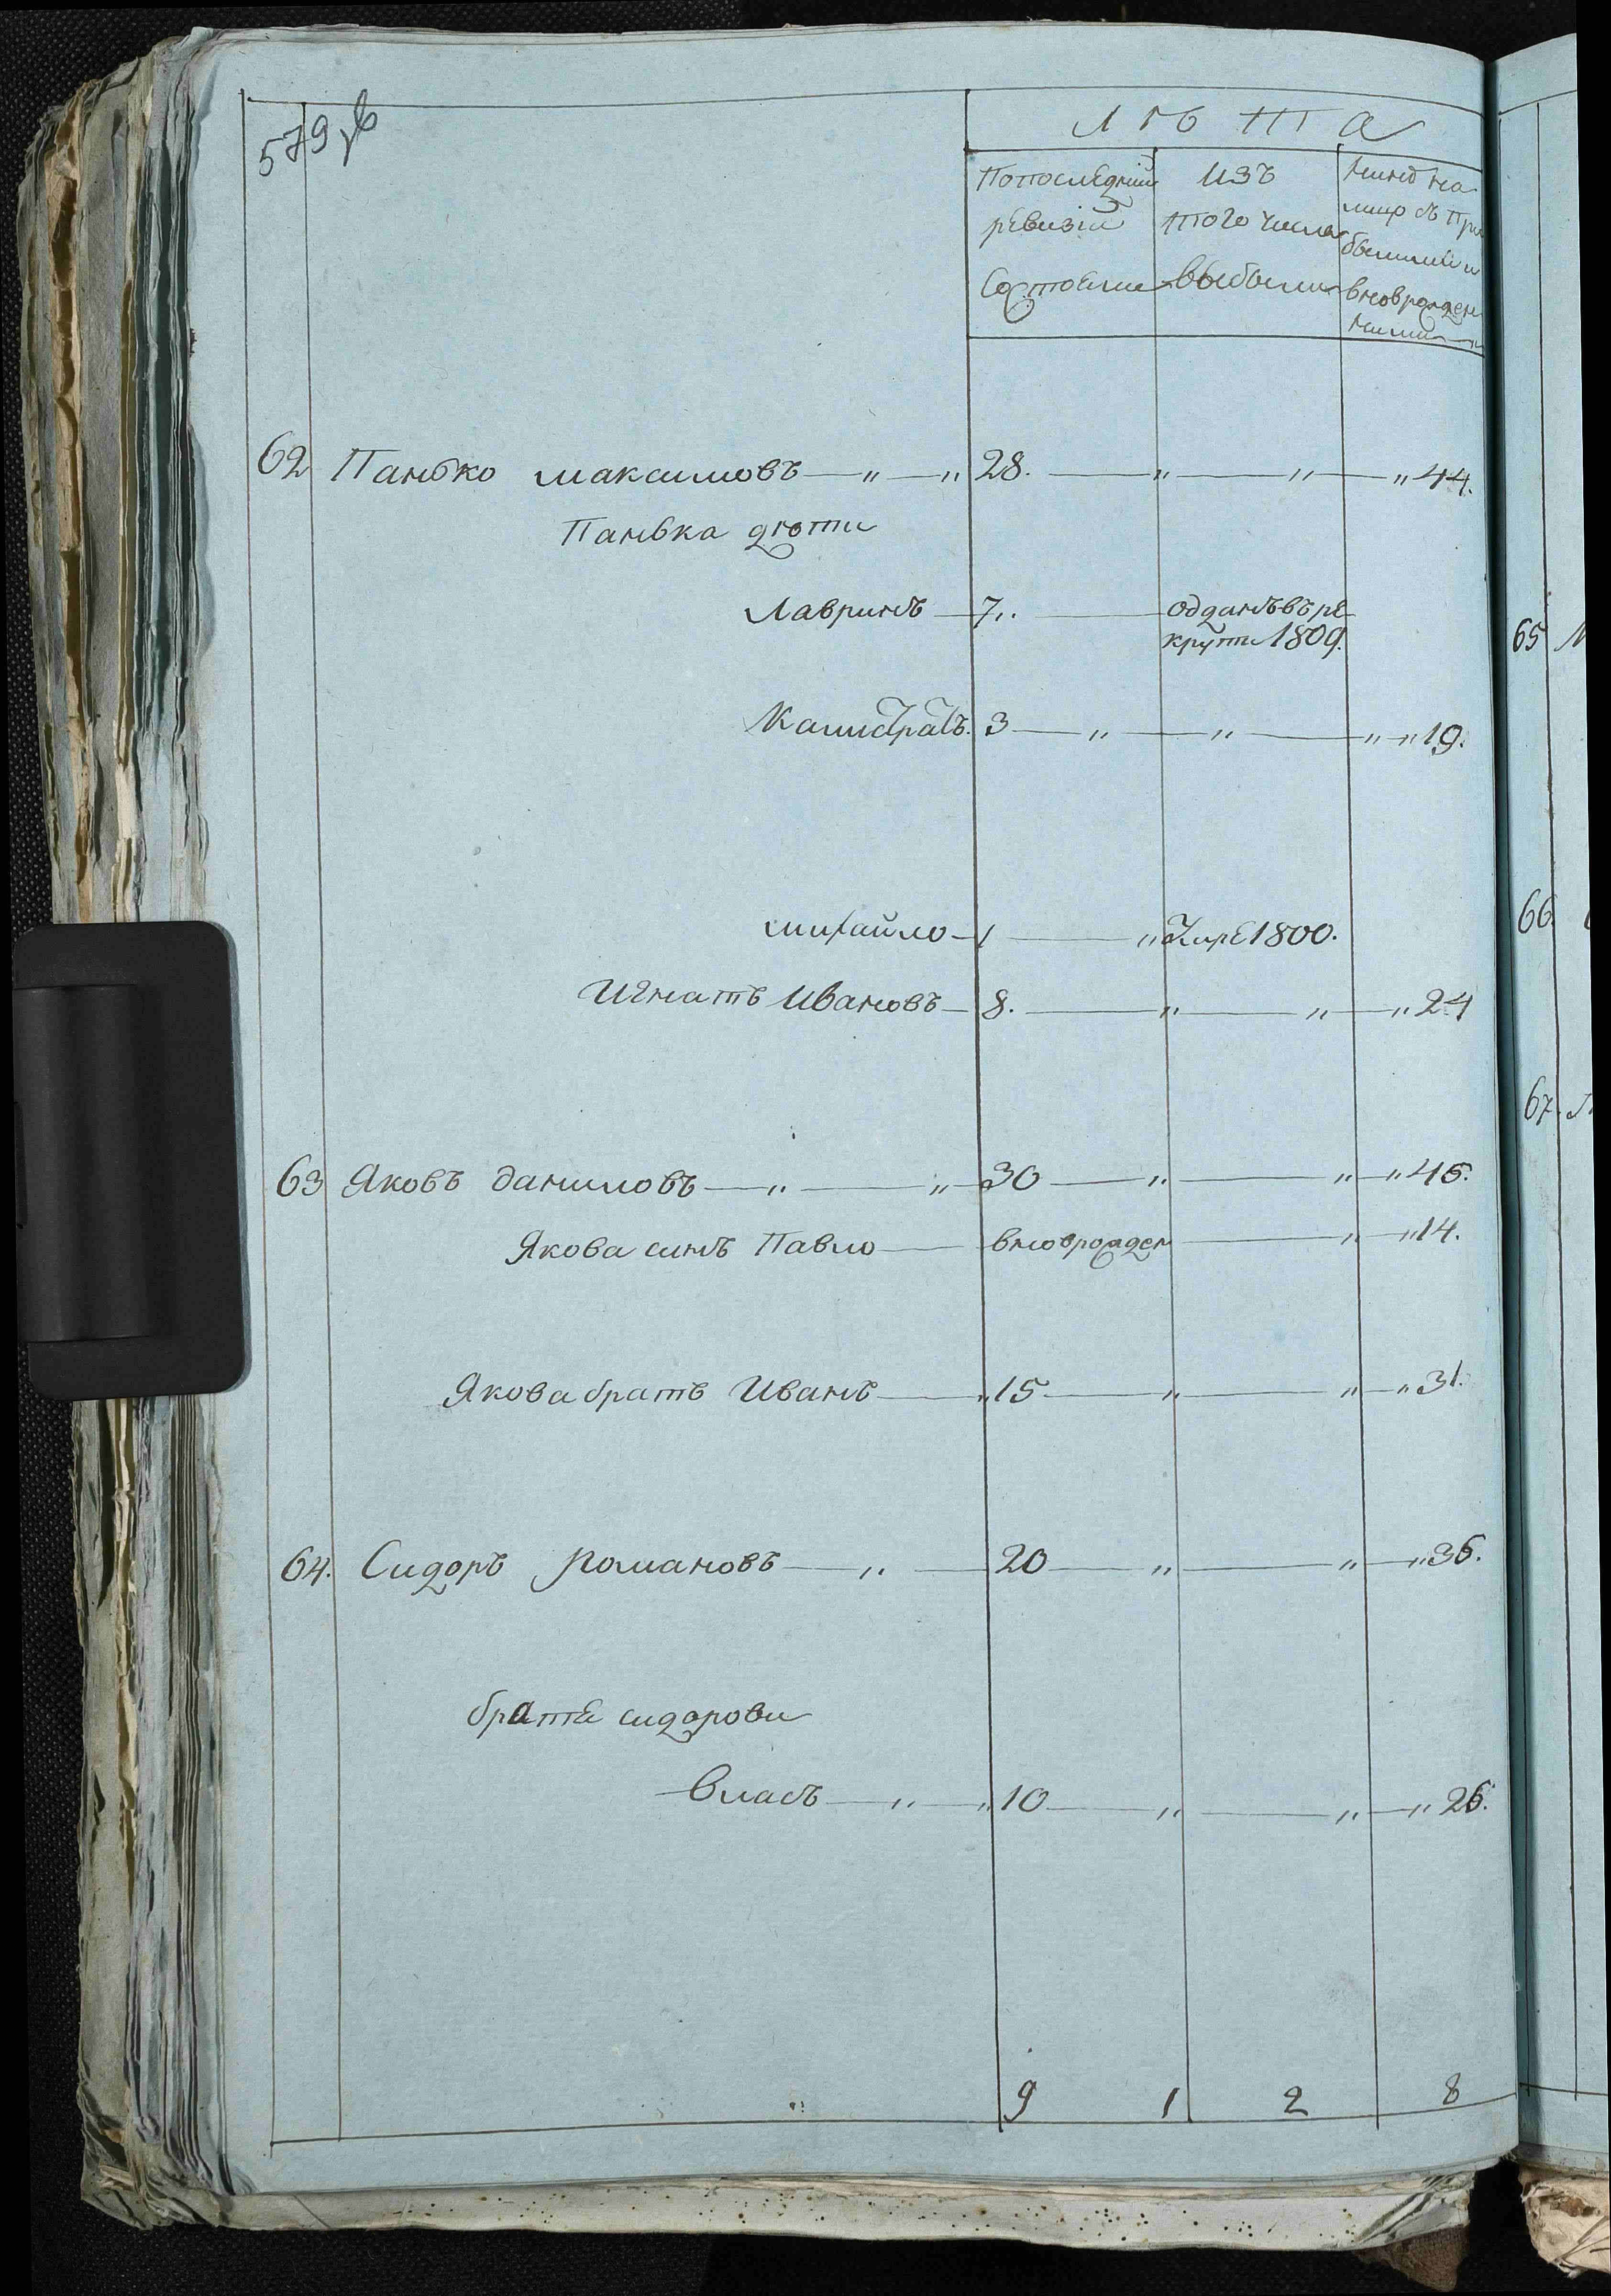 579 об
ЛѢТА
Попоследней
ревизіи
Состояли
изъ
того числа
выбыли
Нынѣ на
лицо съ При
былими и
вноврожден
ними
62 Панько максимовъ 28. 44.
Панька дѣти
Лавринъ 7. одданъ въ ре
крути 1809.
Калистратъ. 3 19.
михайло 1 Умре 1800.
Игнатъ Ивановъ 8. 24
63 Яковъ даниловъ 30 46.
Якова синъ Павло вноврожден 14.
Якова братъ Иванъ 15 31.
64. Сидоръ Романовъ 20 36.
братя сидорови
Власъ 10 26.
9 1 2 8
65
66
67.